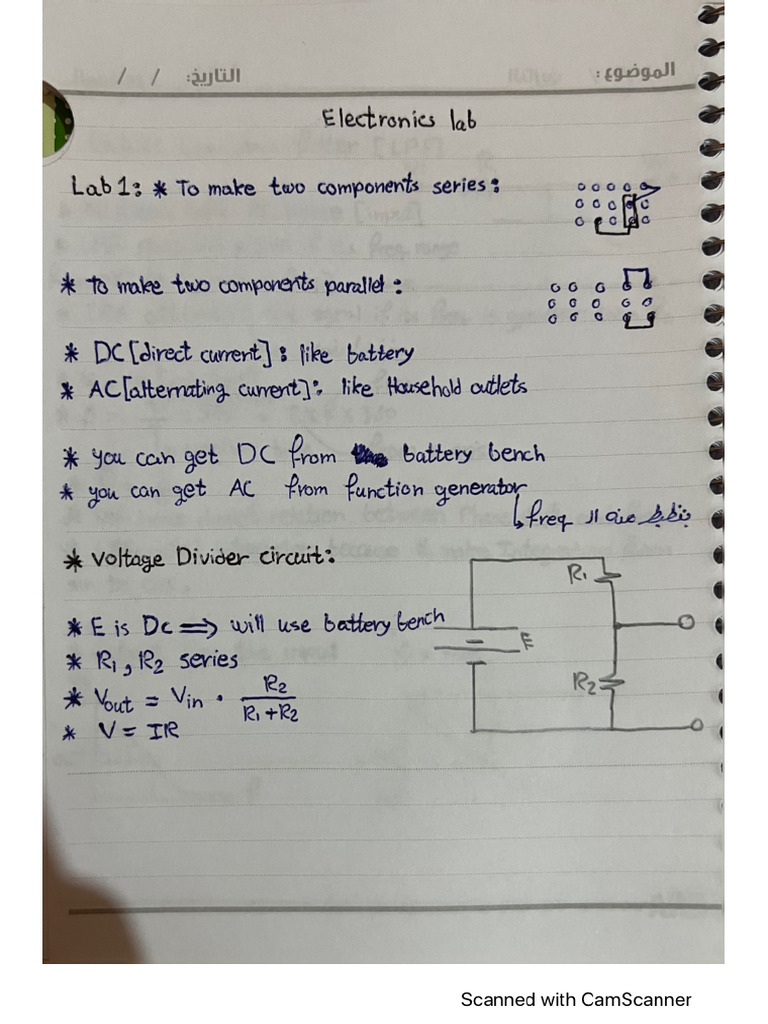 الموضوع: التاريخ: / /
Electronics lab
Lab 1: * To make two components series:
* To make two components parallel:
* DC [direct current]: like battery
* AC [alternating current]: like Household outlets
* you can get DC from battery bench
* you can get AC from function generator
↳ freq بنظبط منه ال
* Voltage Divider circuit:
R1
* E is Dc ⟹ will use battery bench
E
* R1, R2 series
R2
* Vout = Vin · R2 / R1 + R2
* V = IR
Scanned with CamScanner